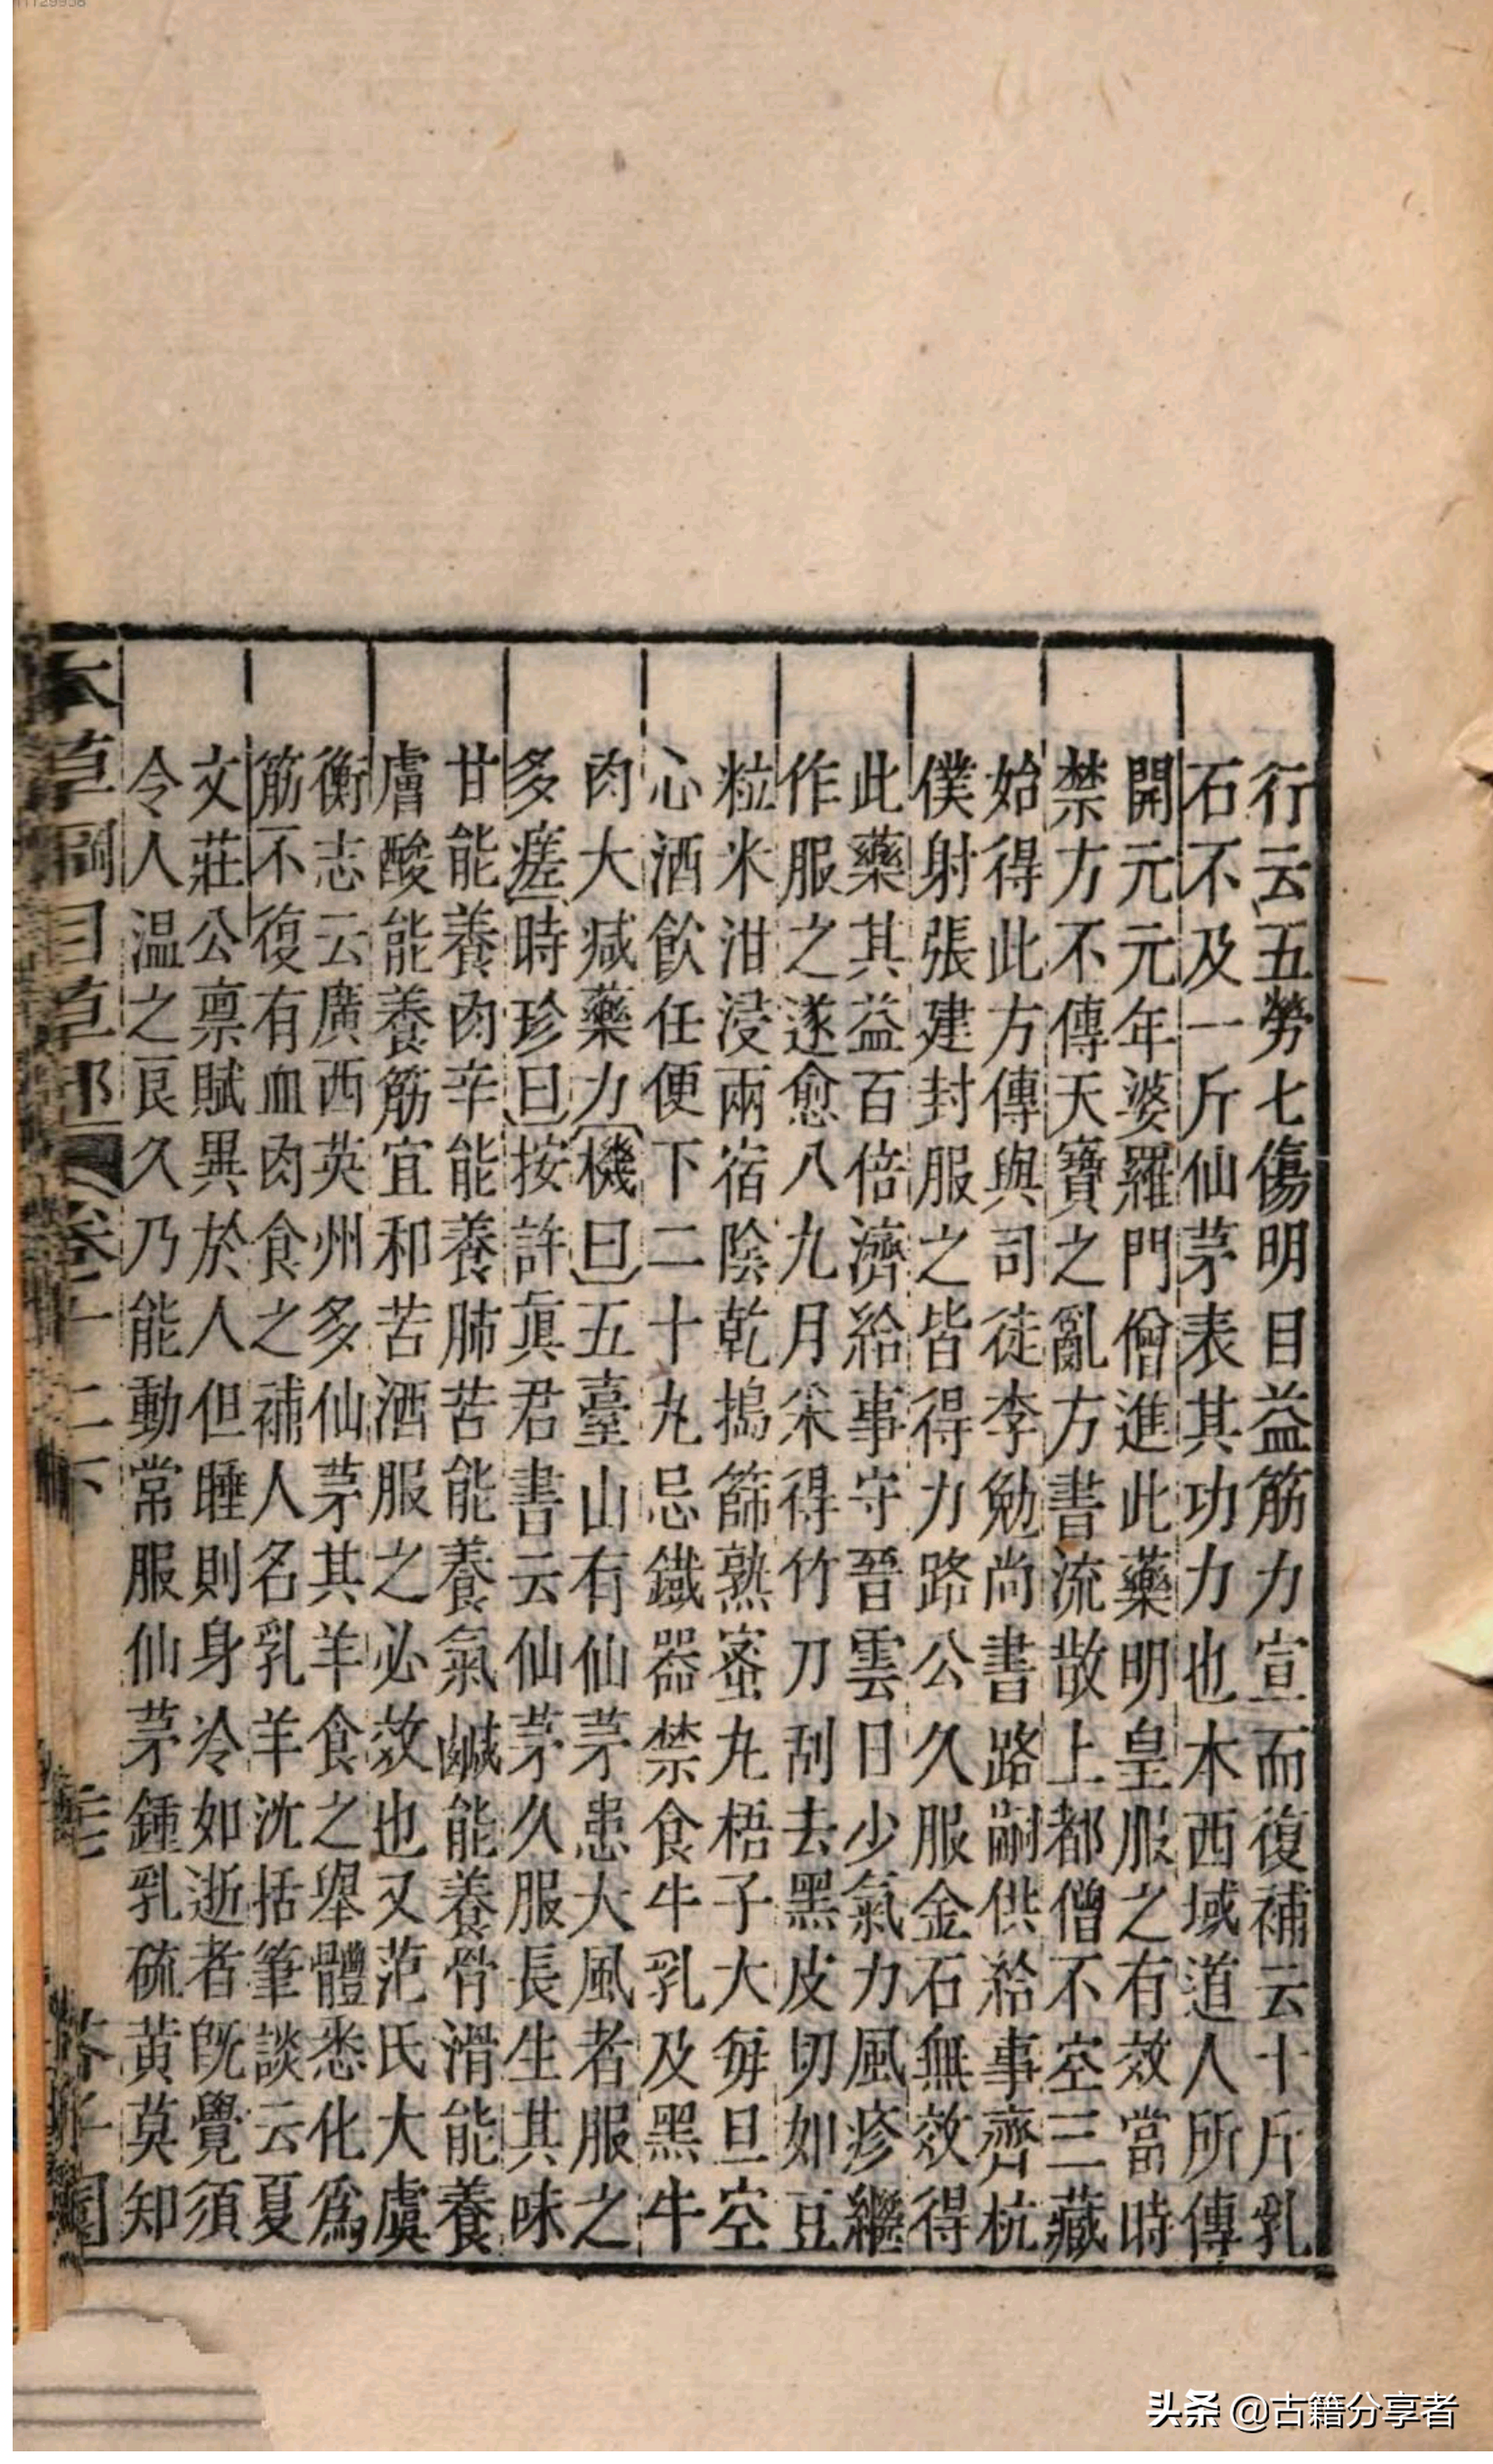 行云五勞七傷明目益筋力宣而復補云十斤乳
石不及一斤仙茅表其功力也本西域道人所傳
開元元年婆羅門僧進此藥明皇服之有效當時
禁方不傳天寶之亂方書流散上都僧不空三藏
始得此方傳與司徒李勉尚書路嗣供給事齊杭
僕射張建封服之皆得力路公久服金石無效得
此藥其益百倍濟給事守晉雲日少氣力風疹繼
作服之遂愈八九月采得竹刀刮去黑皮切如豆
粒米泔浸兩宿陰乾搗篩熟蜜丸梧子大每旦空
心酒飲任便下二十丸忌鐵器禁食牛乳及黑牛
肉大減藥力機曰五臺山有仙茅患大風者服之
多瘥時珍曰按許真君書云仙茅久服長生其味
甘能養肉辛能養肺苦能養氣鹹能養骨滑能養
膚酸能養筋宜和苦酒服之必效也又范氏大虞
衡志云廣西英州多仙茅其羊食之舉體悉化為
筋不復有血肉食之補人名乳羊沈括筆談云夏
文莊公禀賦異於人但睡則身冷如逝者既覺須
令人温之良久乃能動常服仙茅鍾乳硫黄莫知
草綱目草部 卷十二下